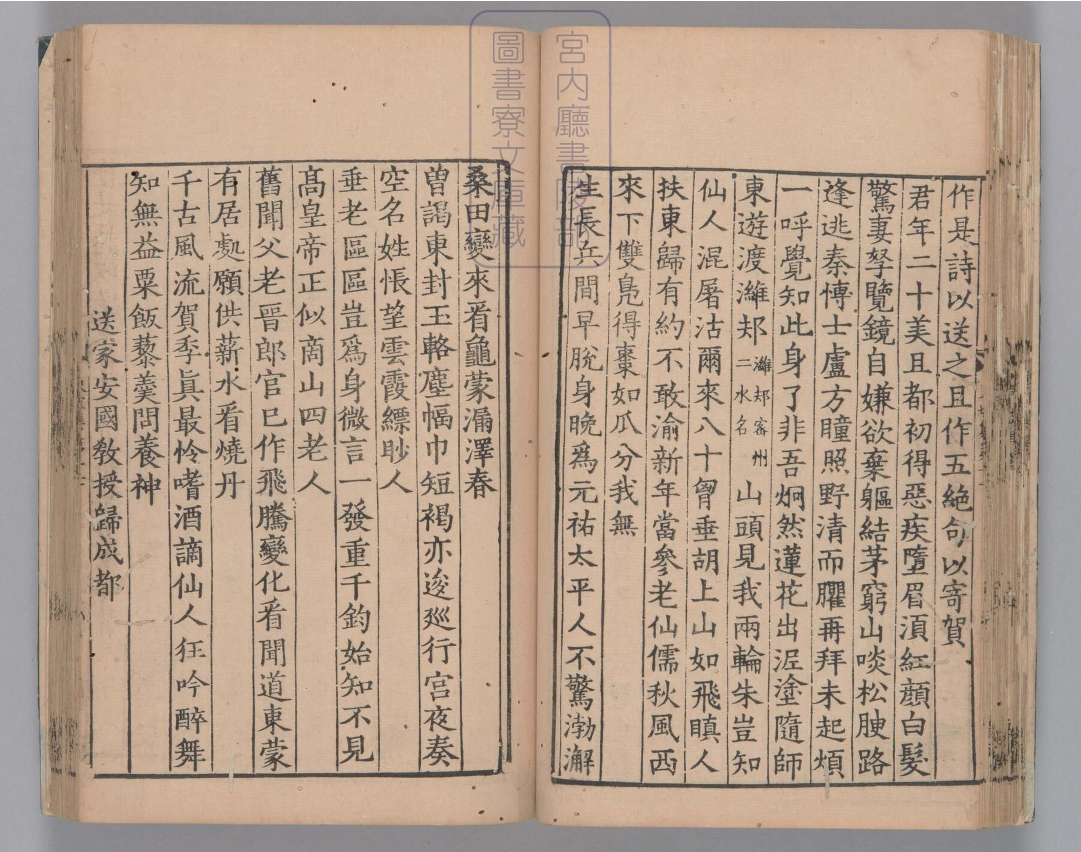 作是詩以送之且作五絕句以寄賀
君年二十美且都初得惡疾墮眉湏紅顏白髮
驚妻孥覽鏡自嫌欲棄軀結茅窮山啖松腴路
逢逃秦愽士盧方瞳照野清而臞再拜未起煩
一呼覺知此身了非吾炯然蓮花出泥塗隨師
東遊渡濰邞濰邞密州二水名山頭見我兩輪朱豈知
仙人混屠沽爾來八十曾垂胡上山如飛瞋人
扶東歸有約不敢渝新年當參老仙儒秋風西
來下雙鳧得棗如瓜分我無
生長兵間早脫身晚爲元祐太平人不驚渤澥
桑田變來看龜蒙漏澤春
曾謁東封玉輅塵幅巾短褐亦逡廵行宮夜奏
空名姓悵望雲霞縹眇人
垂老區區豈爲身微言一發重千鈞始知不見
高皇帝正似商山四老人
舊聞父老晉郎官已作飛騰變化看聞道東蒙
有居處願供薪水看燒丹
千古風流賀季眞最怜嗜酒謫仙人狂吟醉舞
知無益粟飯藜羹問養神
送家安國教授歸成都
宮內廳書陵部
圖書寮文庫藏